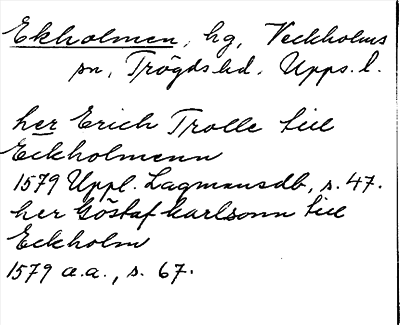 Ekholmen, hg, Veckholms
sn, Trögds hd, Upps. l.
her Erich Trolle till
Eckholmenn
1579 Uppl. Lagmansdb, s. 47.
her Göstaf karlsonn till
Eckholm
1579 a.a., s. 67.